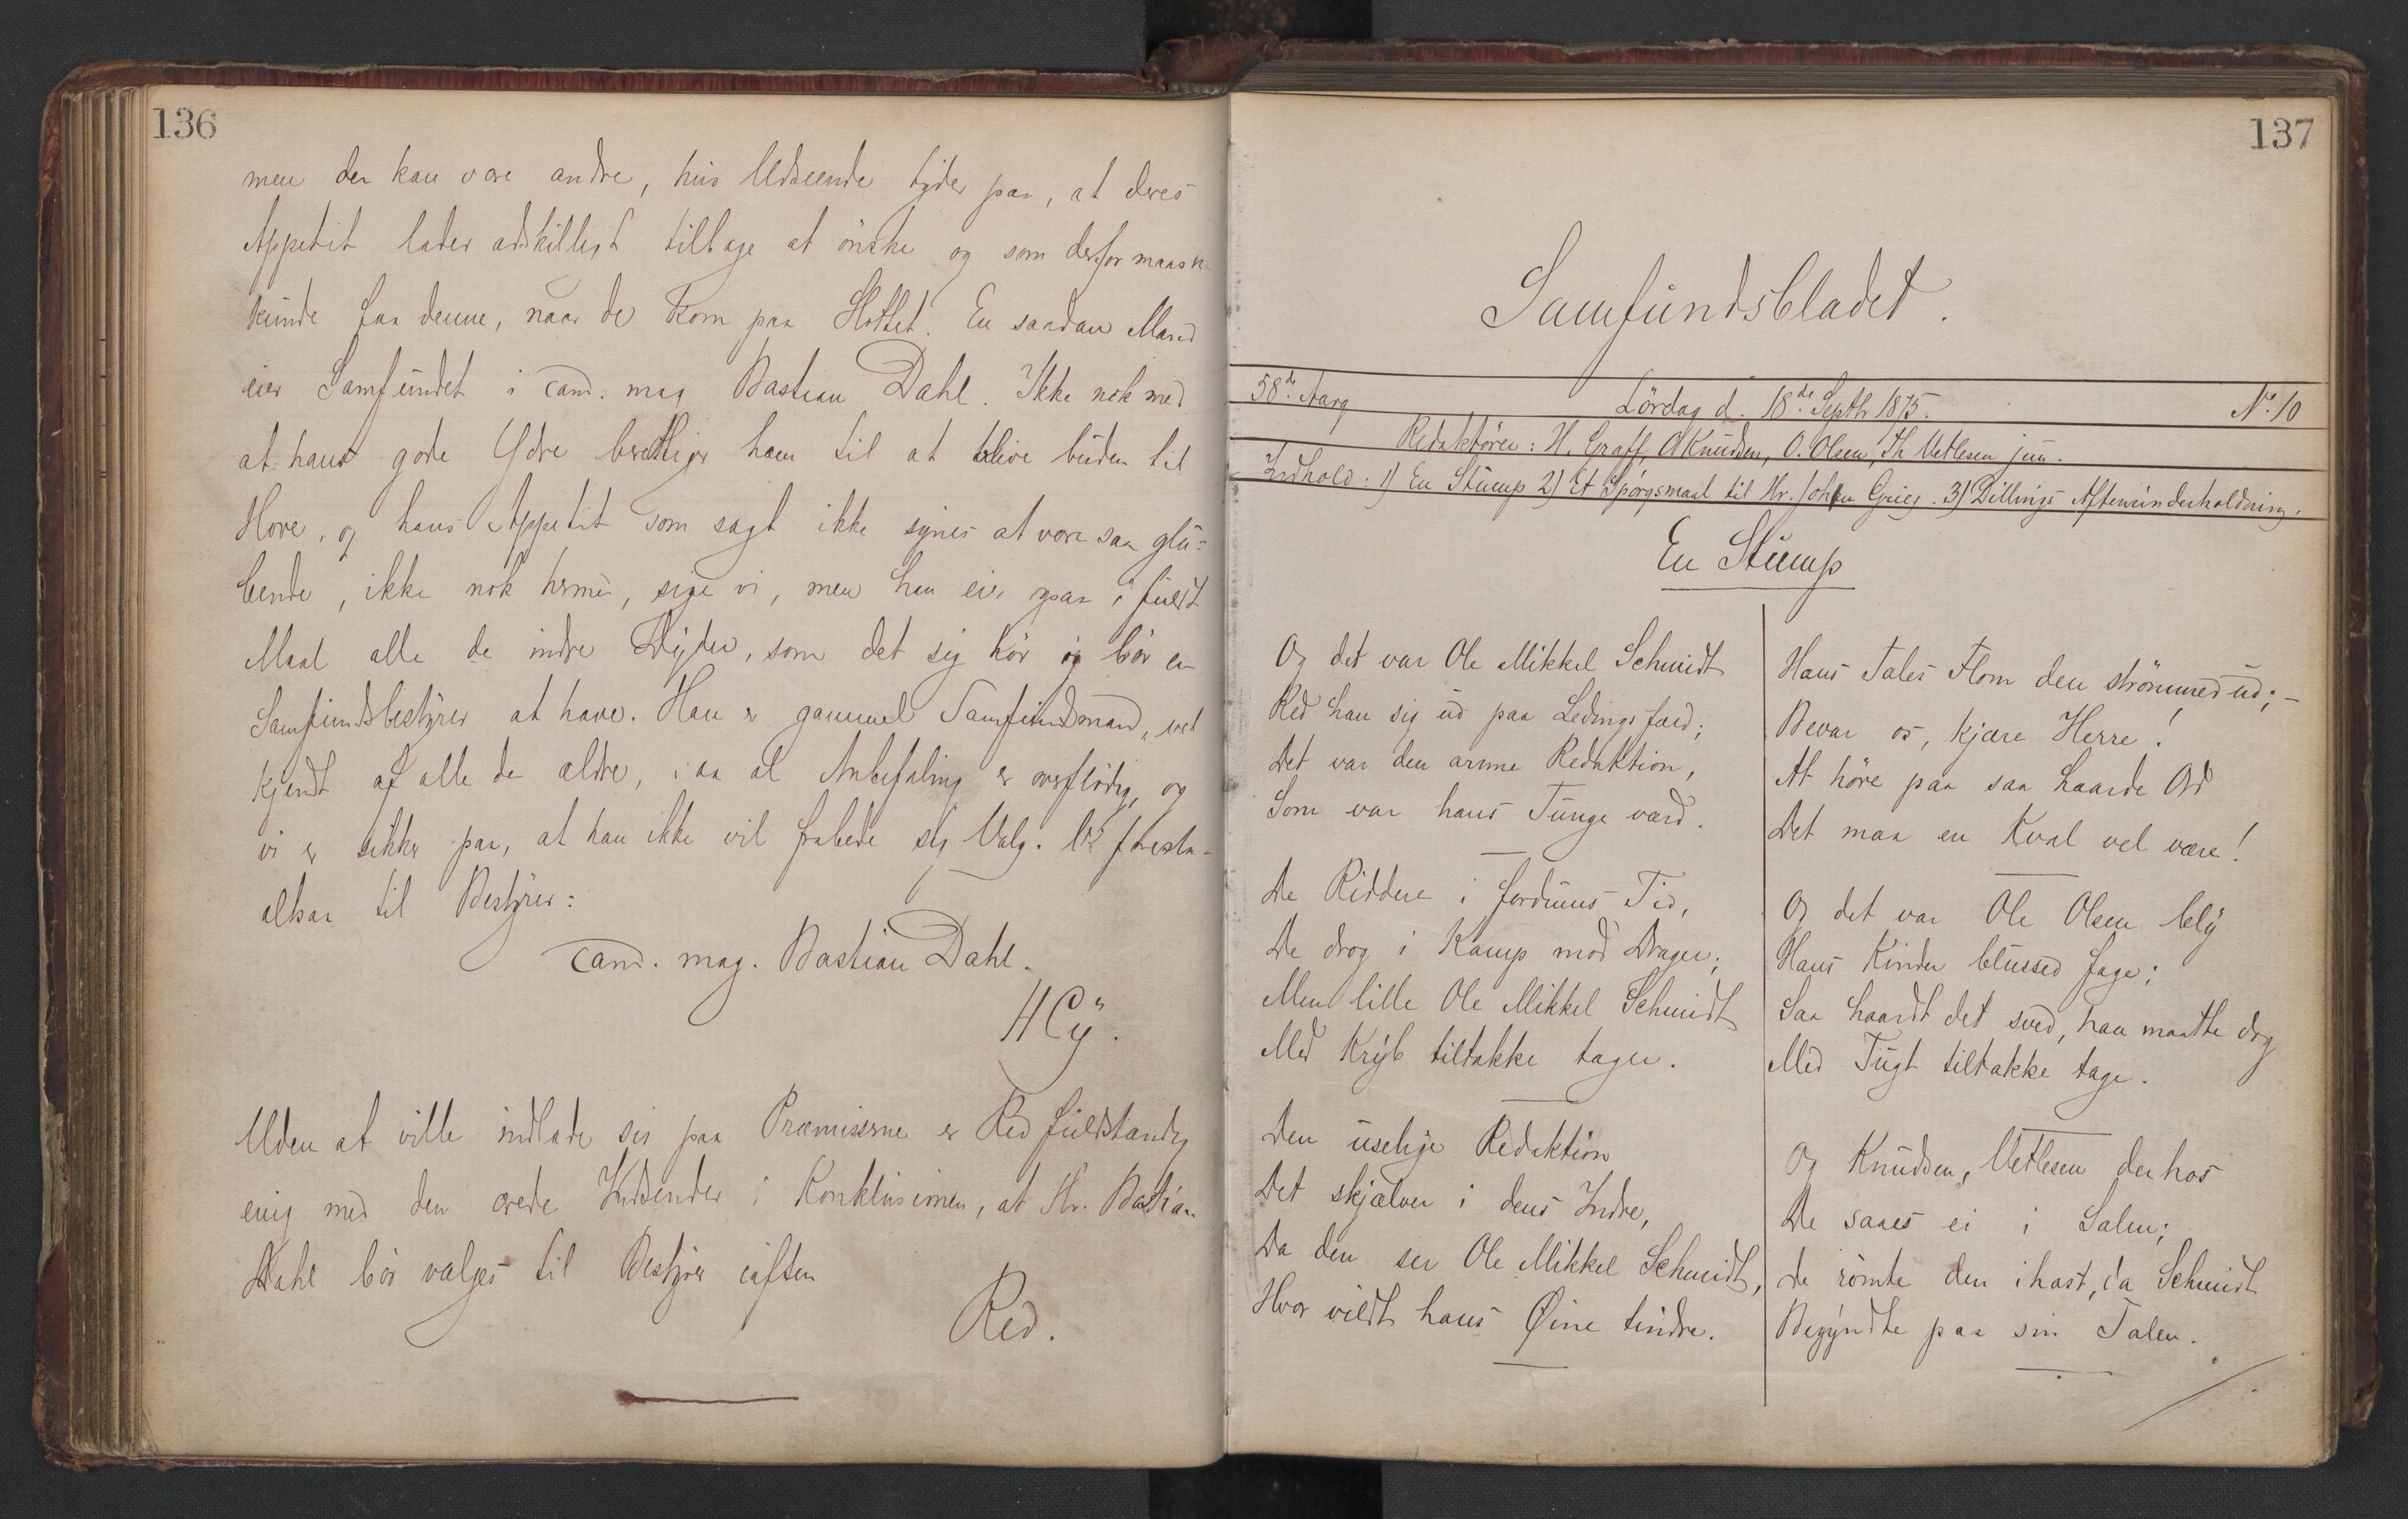 136
men der kan være andre, hvis Udseende tyder paa, at deres
Appetit lader adskilligt tilbage at önske og som derfor maask
kunde faa denne, naar de kom paa Slottet. En saadan Mand
eier Samfundet i cand. mag Bastian Dahl. Ikke nok med
at hans gode Ydre berettiger ham til at blive buden til
Hove, og hans Appetit som sagt ikke synes at være saa glu=
bende, ikke nok hermed, sige vi, men han eier ogsaa i fuldt
Maal alle de indre Dyder, som det sig hör og bör en
Samfundsbestyrer at have. Han er gammel Samfundsmand, vel
kjendt af alle de ældre, saa al Anbefaling er overflödig, og
vi er sikker paa, at han ikke vil frabede sig Valg. Vi foresla-
altsaa til Bestyrer:
cand. mag. Bastian Dahl.
Uden at ville indlade sig paa Præmisserne er Red fuldstændig
enig med den ærede Indsender i Konklusionen, at Hr. Bastian
Dahl bör vælges til Bestyrer iaften
Red.
137
Samfundsbladet.
58de Aarg Lördag d. 18de Septbr 1875. No 10
Redaktörer: H. Graff, O Knudsen, O. Olsen, Th Vetlesen jun.
Indhold: 1) En Stump 2) Et Spörgsmaal til Hr. Johan Grieg. 3) Dillings Aftenunderholdning.
En Stump
Og det var Ole Mikkel Schmidt
Red han sig ud paa Ledingsfærd;
Det var den arme Redaktion,
Som var hans Tunge værd.
De Riddere i fordums Tid,
De drog i Kamp mod Drager;
Men lille Ole Mikkel Schmidt
Med Kryb tiltakke tager.
Den uselige Redaktion
Det skjælver i dens Indre,
Da den ser Ole Mikkel Schmidt,
Hvor vildt hans Øine tindre.
Hans Tales Flom den strömmed ud; –
Bevar os, kjære Herre!
At höre paa saa haarde Ord
Det maa en Kval vel være!
Og det var Ole Olsen bly
Hans Kinder blussed fage;
Saa haardt det sved, han maatte dog
Med Tugt tiltakke tage.
Og Knudsen, Vetlesen derhos
De saaes ei i Salen;
De römte den ihast, da Schmidt
Begyndte paa sin Talen.